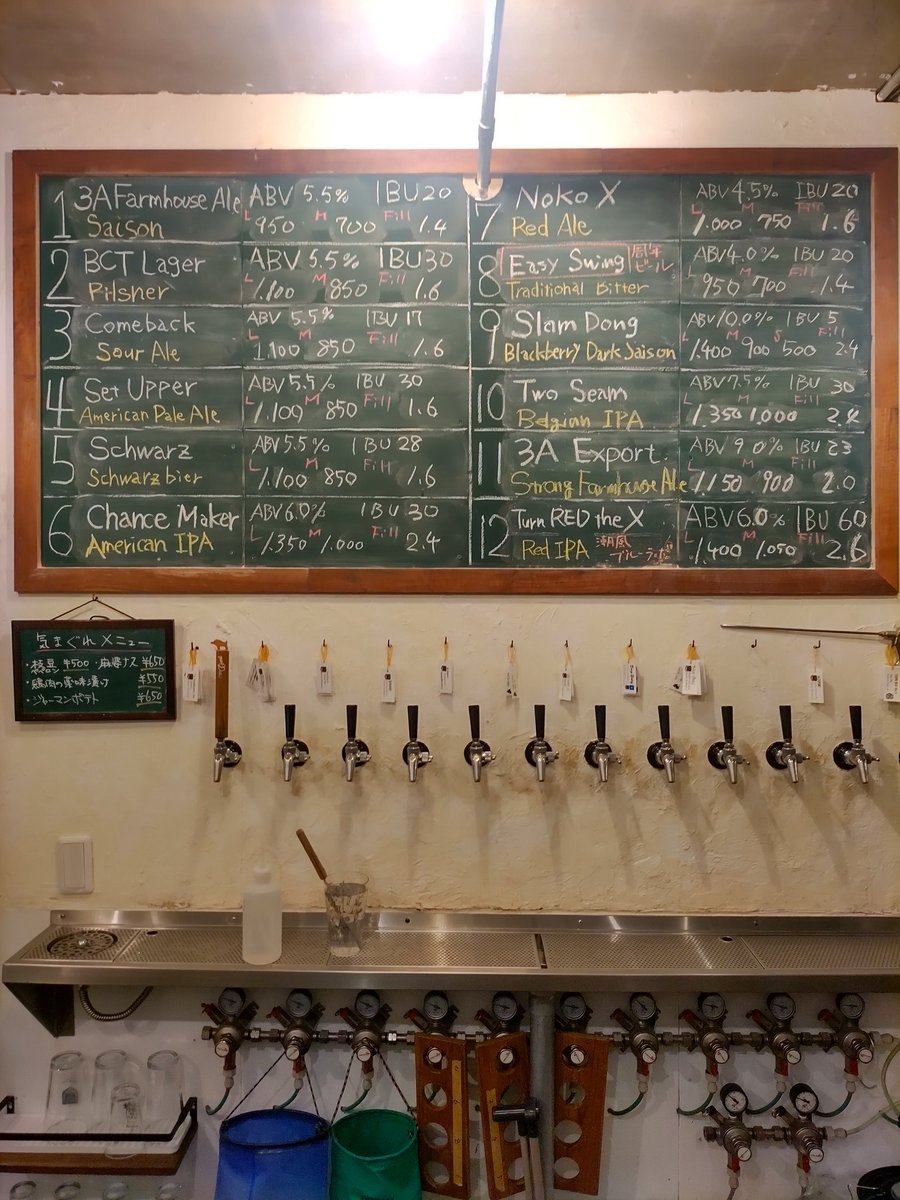 1 3A Farmhouse Ale ABV 5.5% IBU 20
Saison L 950 M 700 Fill 1.4
2 BCT Lager ABV 5.5% IBU 30
Pilsner L 1.100 M 850 Fill 1.6
3 Comeback ABV 5.5% IBU 17
Sour Ale L 1.100 M 850 Fill 1.6
4 Set Upper ABV 5.5% IBU 30
American Pale Ale L 1.100 M 850 Fill 1.6
5 Schwarz ABV 5.5% IBU 28
Schwarzbier L 1.100 M 850 Fill 1.6
6 Chance Maker ABV 6.0% IBU 30
American IPA L 1.350 M 1.000 Fill 2.4
7 Noko X ABV 4.5% IBU 20
Red Ale L 1.000 M 750 Fill 1.6
8 Easy Swing 周年ビール ABV 4.0% IBU 20
Traditional Bitter L 950 M 700 Fill 1.4
9 Slam Dong ABV 10.0% IBU 5
Blackberry Dark Saison L 1.400 M 900 S 500 Fill 2.4
10 Two Seam ABV 7.5% IBU 30
Belgian IPA L 1.350 M 1.000 Fill 2.4
11 3A Export. ABV 9.0% IBU 23
Strong Farmhouse Ale L 1.150 M 900 Fill 2.0
12 Turn RED the X ABV 6.0% IBU 60
Red IPA 潮風ブルーラボ L 1.400 M 1.050 Fill 2.6
気まぐれメニュー
・枝豆ペペロン ¥500 ・麻婆ナス ¥650
・鶏肉の薬味漬け ¥550
・ジャーマンポテト ¥650